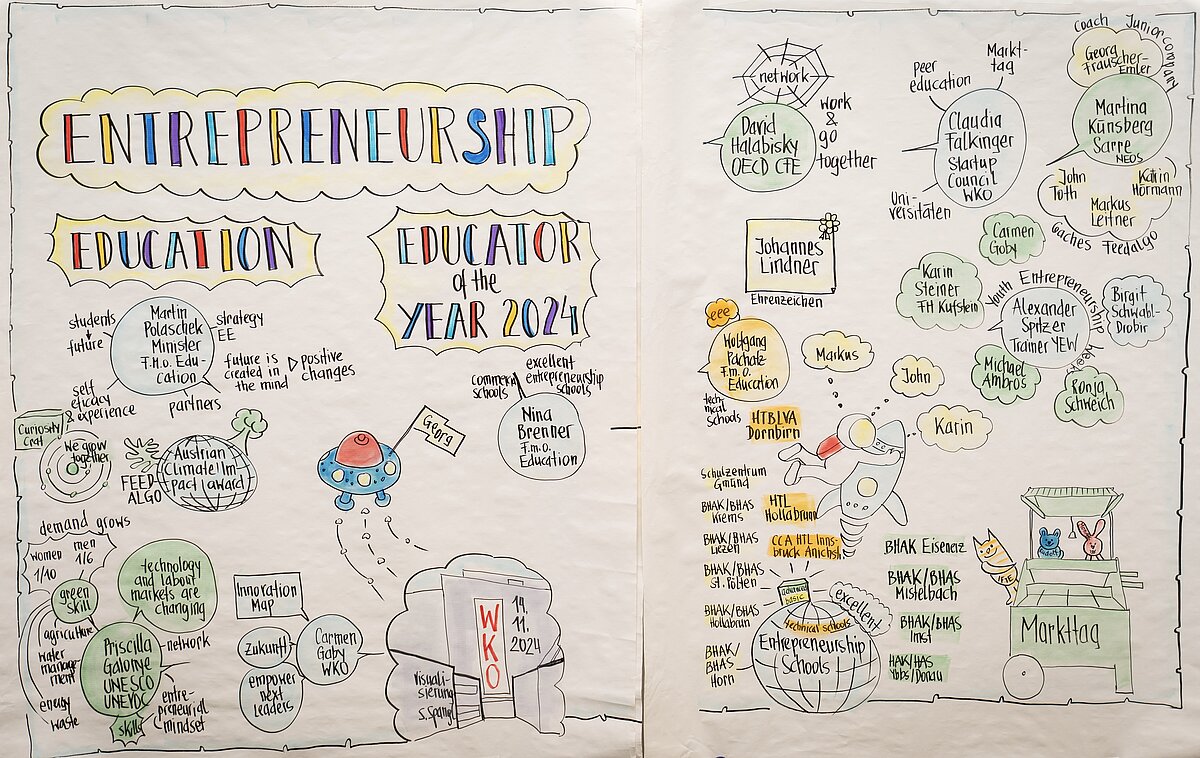 ENTREPRENEURSHIP
EDUCATION
EDUCATOR
of the
YEAR 2024
students
future
Martin
Polaschek
Minister
F.M.o. Edu-
cation
strategy
EE
future is
created in
the mind
positive
changes
self
efficacy
& experience
partners
Curiosity
We grow
together
FEED
ALGO
Austrian
Climate Im
pact award
Georg
commercial
schools
excellent
entrepreneurship
schools
Nina
Brenner
F.m.o.
Education
demand grows
women
1/10
men
1/6
green
skill
technology
and labour
markets are
changing
agriculture
water
manage-
ment
energy
waste
Priscilla
Galonye
UNESCO
UNEVOC
network
entre-
preneurial
mindset
skills
Innovation
Map
Zukunft
Carmen
Gaby
WKO
empower
next
Leaders
WKO
14.
11.
2024
Visuali-
sierung
S. Spangl
network
David
Halabisky
OECD CFE
work
&
go
together
peer
education
Markt-
tag
Claudia
Falkinger
Startup
Council
WKO
Uni-
versitäten
Coach Junior Company
Georg
Frauscher-
Emler
Martina
Künsberg
Sarre
NEOS
John
Toth
Katrin
Hörmann
Markus
Leitner
Coaches Feedalgo
Johannes
Lindner
Ehrenzeichen
Carmen
Goby
Karin
Steiner
FH Kufstein
Youth Entrepreneurship
Week
Alexander
Spitzer
Trainer YEW
Birgit
Schwabl-
Drobir
Michael
Ambros
Ronja
Schweich
eee
Wolfgang
Pachatz
F.m.o.
Education
Markus
John
Karin
tech-
nical
Schools
HTBLVA
Dornbirn
Schulzentrum
Gmünd
BHAK/BHAS
Krems
HTL
Hollabrunn
BHAK/BHAS
Liezen
CCA HTL Inns-
bruck Anichstr
BHAK/BHAS
St. Pölten
BHAK/BHAS
Hollabrun
BHAK/
BHAS
Horn
advanced
basic
technical schools
excellent
Entrepreneurship
Schools
BHAK Eisenerz
BHAK/BHAS
Mistelbach
BHAK/BHAS
Imst
HAK/HAS
Ybbs/Donau
Markttag